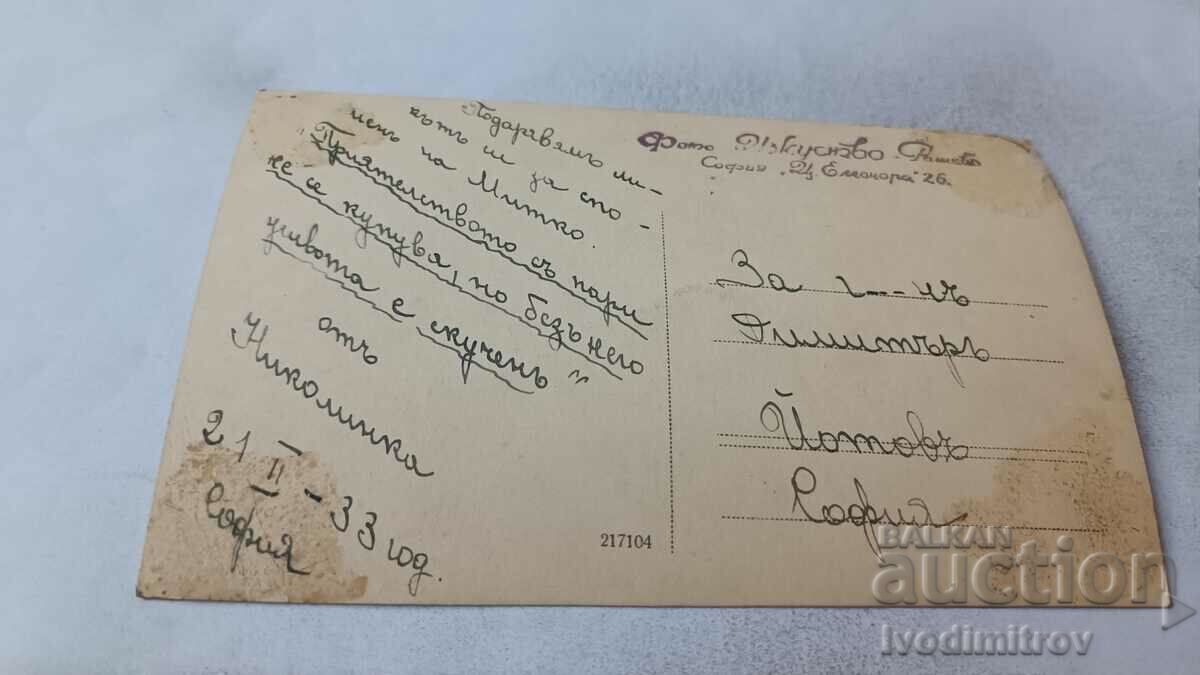 Подарявамъ ли-
кътъ ш за спо-
менъ на Митко.
"Приятелството съ пари
не се купува, но безъ него
живота е скученъ"
отъ
Николинка
21 II - 33 год.
София
217104
Фото Изкуство
София "Ц. Елеонора" 26.
За г---нъ
Димитъръ
Йотовъ
София
BALKAN
auction
Ivodimitrov